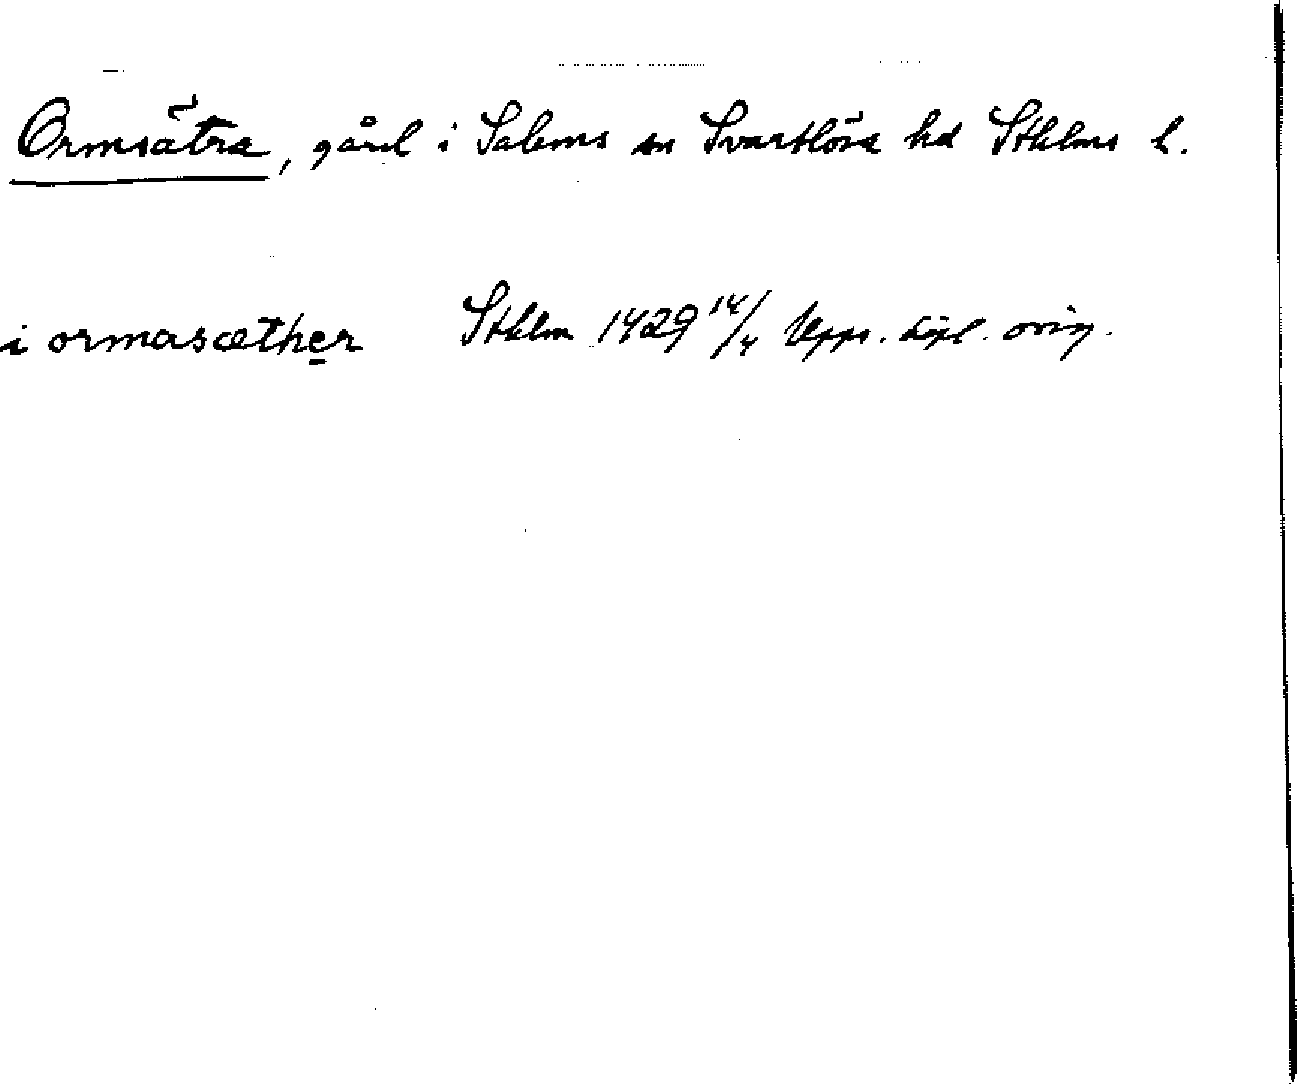 Ormsätra, gård i Salems sn Svartlösa hd Sthlms l.
i ormasæther Sthlm 1429 14/4 Upps. dipl. orig.